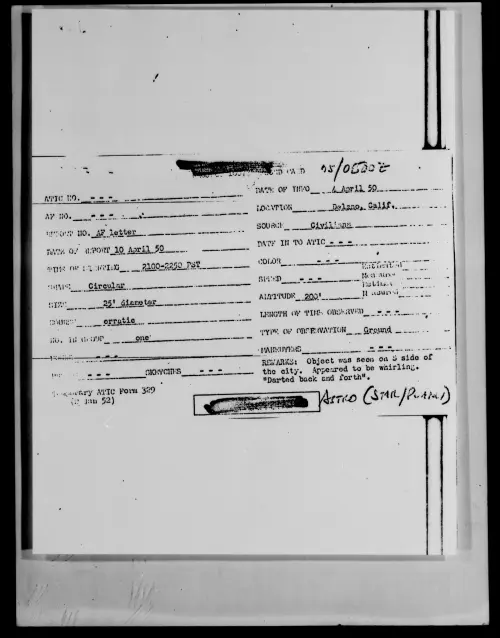 05/0500Z
ATIC NO. - - -
DATE OF INFO 4 April 50
AF NO. - - -
LOCATION Delano, Calif.
REPORT NO. AF letter
SOURCE Civilians
DATE OF REPORT 10 April 50
DATE IN TO ATIC - - -
TIME OF SIGHTING 2100-2250 PST
COLOR - - -
SHAPE Circular
SPEED - - -
SIZE 25' diameter
ALTITUDE 200'
COURSE erratic
LENGTH OF TIME OBSERVED - - -
NO. IN GROUP one
TYPE OF OBSERVATION Ground
- - -
MANEUVERS - - -
- - - SKETCHES - - -
REMARKS: Object was seen on S side of
the city. Appeared to be whirling.
"Darted back and forth".
Temporary ATIC Form 329
(2 Jan 52)
ASTRO (STAR/PLANET)